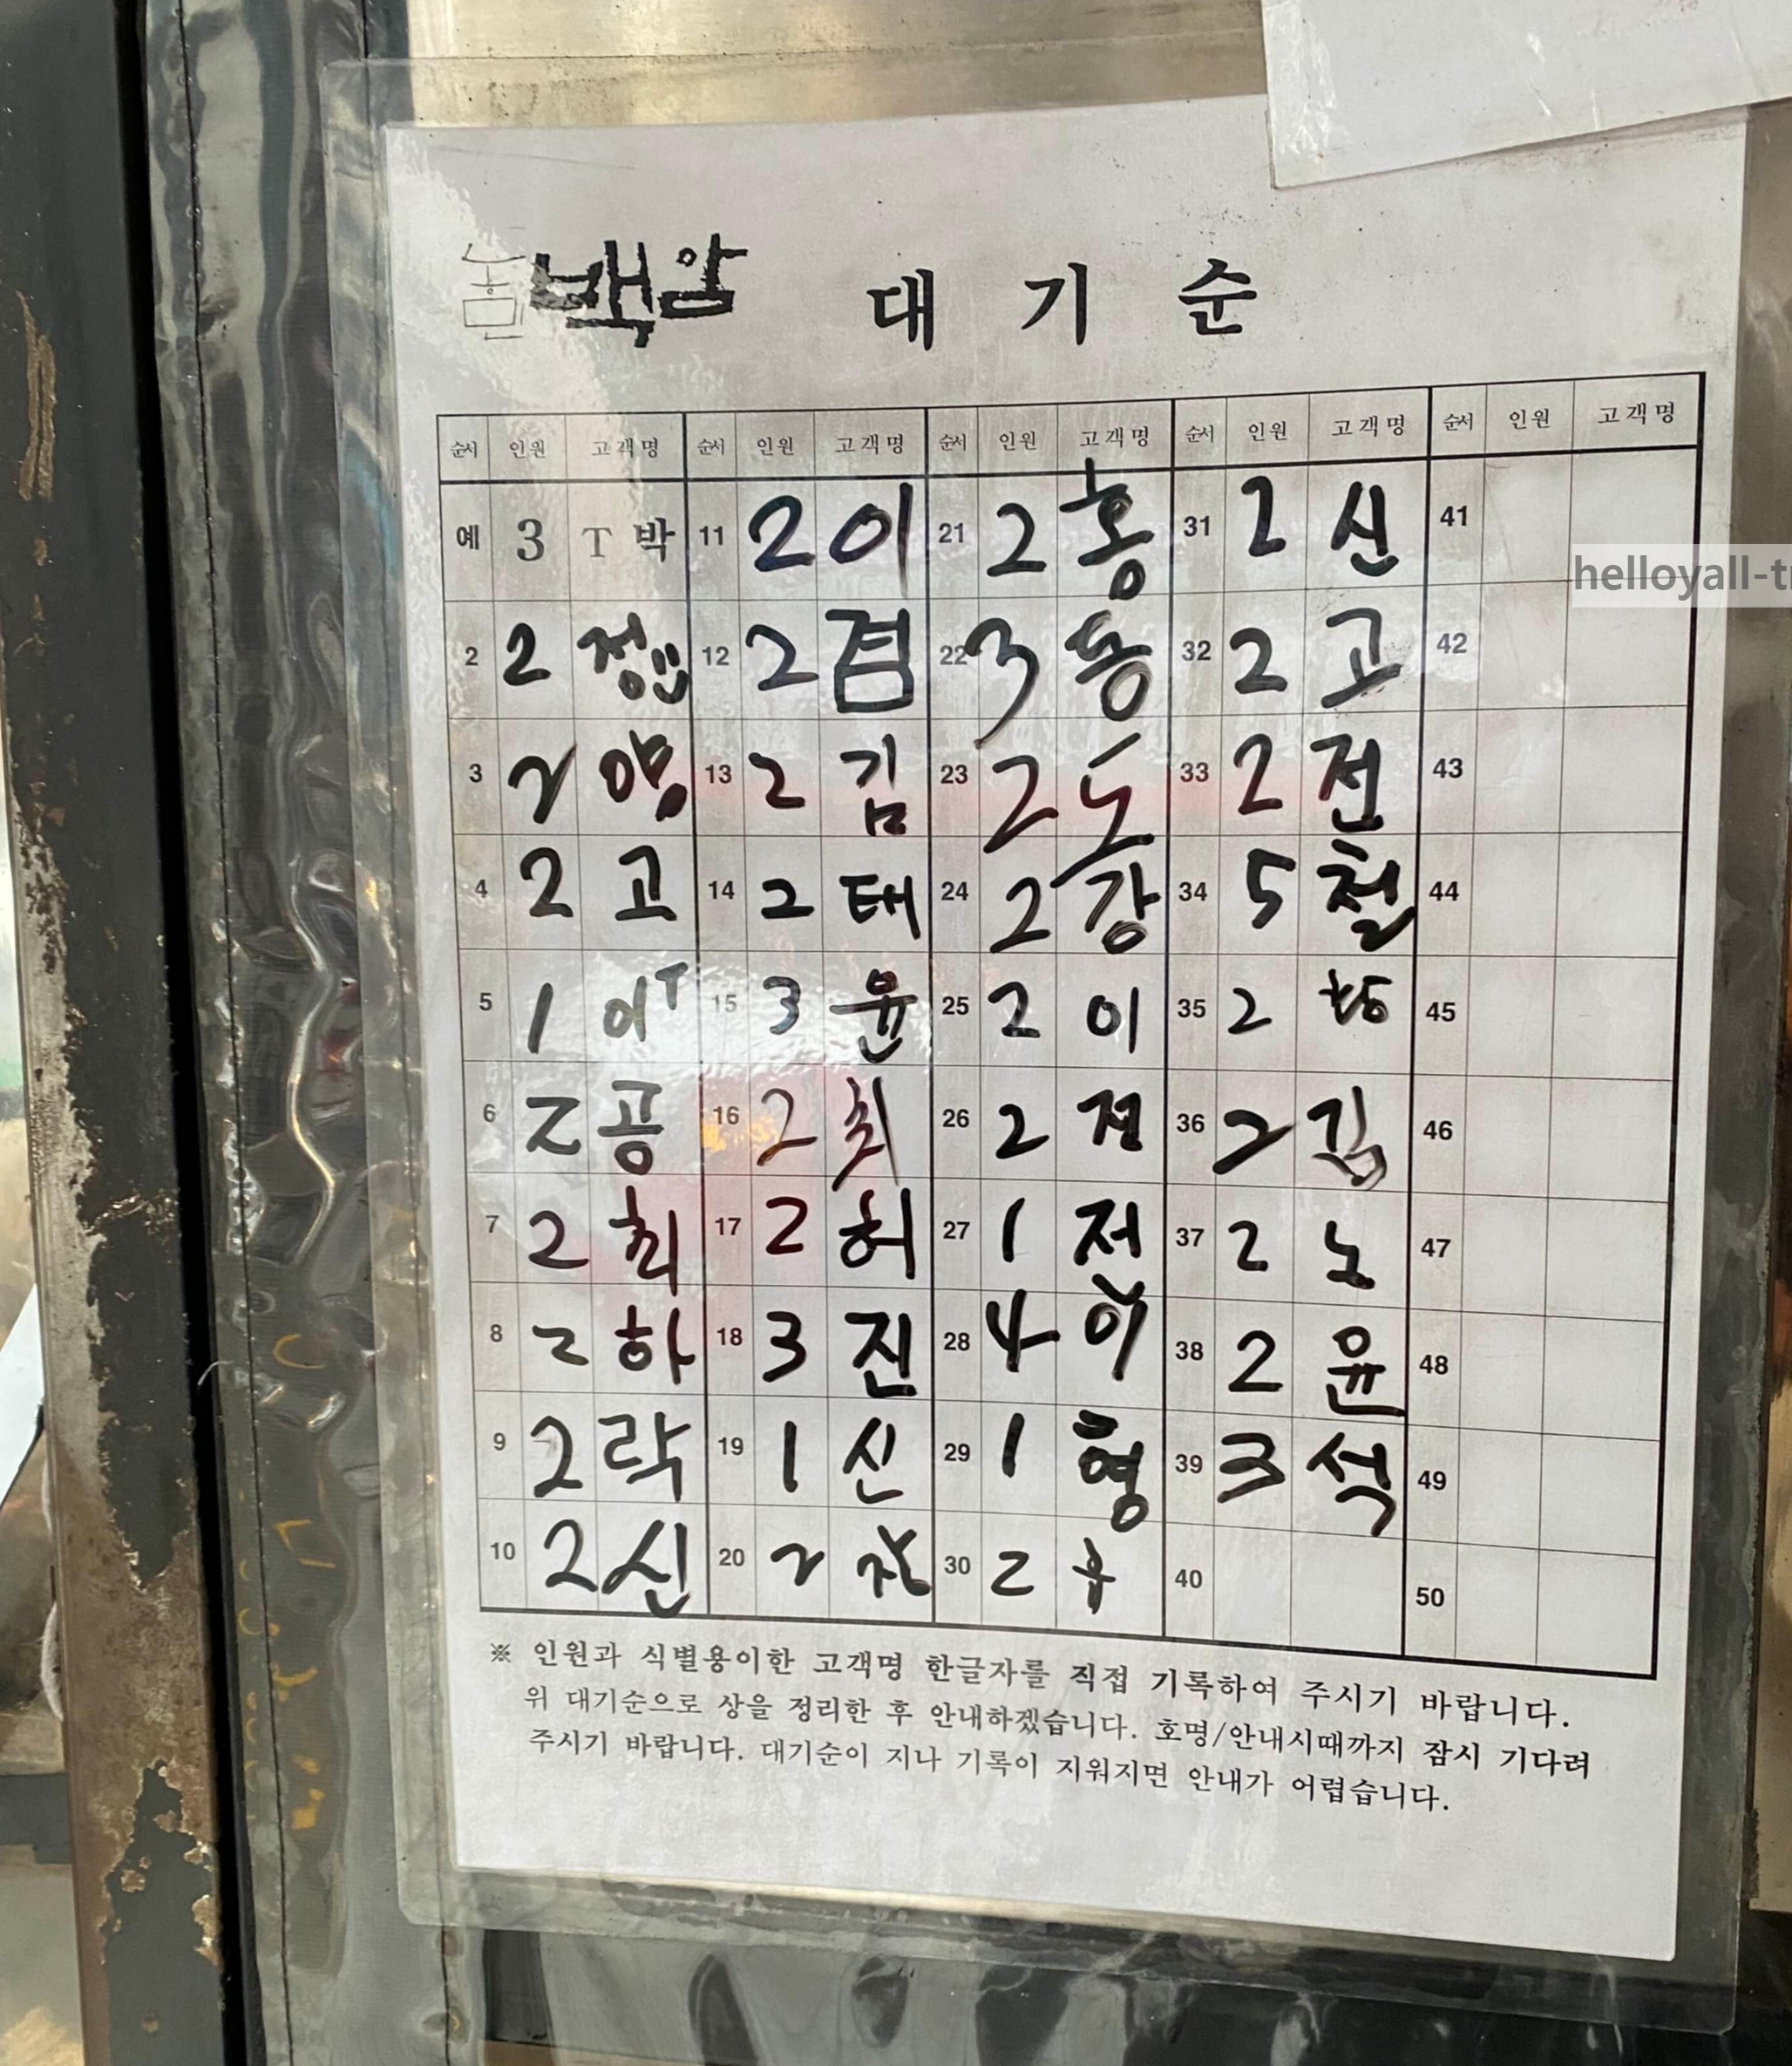 백암 대기순
순서 인원 고객명 순서 인원 고객명 순서 인원 고객명 순서 인원 고객명 순서 인원 고객명
예 3 T 박 11 2 이 21 2 홍 31 2 신 41
2 2 정 12 2 겸 22 3 용 32 2 고 42
3 2 양 13 2 김 23 2 도 33 2 전 43
4 2 고 14 2 태 24 2 강 34 5 철 44
5 1 이T 15 3 윤 25 2 이 35 2 45
6 2 공 16 2 최 26 2 정 36 2 김 46
7 2 최 17 2 허 27 1 저 37 2 노 47
8 2 하 18 3 진 28 4 이 38 2 윤 48
9 2 락 19 1 신 29 1 형 39 3 석 49
10 2 신 20 2 30 2 40 50
※ 인원과 식별용이한 고객명 한글자를 직접 기록하여 주시기 바랍니다.
위 대기순으로 상을 정리한 후 안내하겠습니다. 호명/안내시때까지 잠시 기다려
주시기 바랍니다. 대기순이 지나 기록이 지워지면 안내가 어렵습니다.